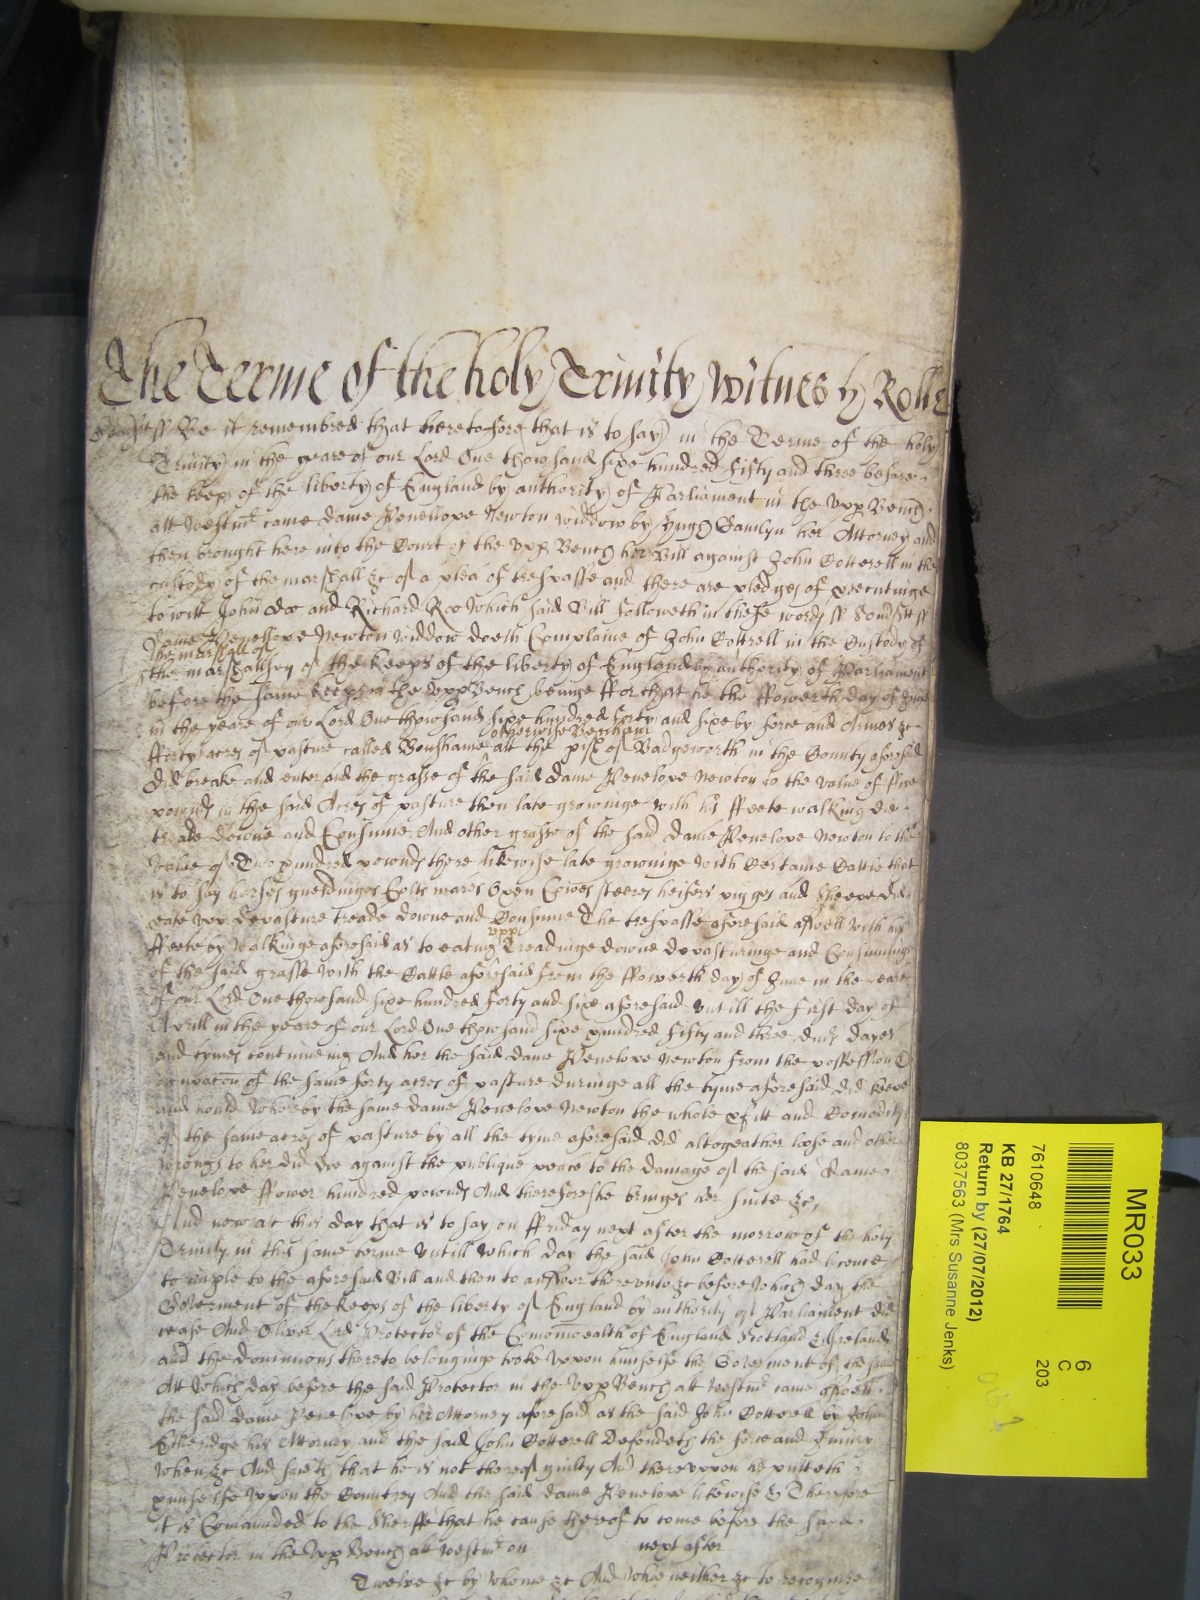 The Terme of the holy Trinity Witnes H Rolle
Somst ss Be it remembred that heretofore that is to say in the Terme of the holy
Trinity in the yeare of our Lord One thowsand sixe hundred fifty and three before
the keeps of the liberty of England by authority of Parliament in the Upp Bench
att Westmr came dame Penellope Newton widdow by Hugh Gamlyn her Attorney and
then brought here into the Court of the Upp Bench her Bill against John Cotterell in the
custody of the marshall &c of a plea of trespasse and there are pledges of prosecutinge
to witt John doe and Richard Roe Which said Bill followeth in these words ss Somst ss
Dame Penellope Newton widdow doeth Complaine of John Cottrell in the Custody of
the marshall of
the marshallsey of the keeps of the liberty of England by authority of Parliament
before the same keeps in the Upp Bench beinge ffor that he the ffowerth day of June
in the yeare of our Lord One thowsand sixe hundred forty and sixe by force and Armes &c
otherwise Bencham
fforty acres of pasture called Bonshame att the pish of Badgeworth in the County aforesaid
did breake and enter and the grasse of the said dame Penelope Newton to the value of five
pownds in the said Acres of pasture then late growinge with his ffeete walking did
treade downe and Consume And other grasse of the said dame Penelope Newton to the
value of Two hundred pownds there likewise late growinge with Certaine Cattle that
is to say horses gueldinges Colts mares Oxen Cowes steeres heifers pigges and Sheepe did
eate upp depasture treade downe and Consume The trespasse aforesaid aswell with his
upp
ffeete by walkinge aforesaid as to eating Treadinge downe depasturinge and Consuminge
of the said grasse with the Cattle aforesaid from the ffowerth day of June in the yeare
of our Lord One thowsand sixe hundred forty and sixe aforesaid untill the first day of
Aprill in the yeare of our Lord One thowsand sixe hundred fifty and three divs dayes
and tymes continueing And her the said dame Penelope Newton from the possession &
occupacon of the same forty acres of pasture duringe all the tyme aforesaid did keepe
and hould Whereby the same dame Penelope Newton the whole pfitt and Comodity
of the same acres of pasture by all the tyme aforesaid did altogeather loose and other
wrongs to her did doe against the publique peace to the damage of the said Dame
Penelope ffower hundred pownds And therefore she bringes her suite &c
And now at this day that is to say on ffriday next after the morrow of the holy
Trinity in this same terme untill which day the said John Cotterell had licence
to imple to the aforesaid Bill and then to answer thereunto &c before which day the
Goverment of the keeps of the liberty of England by authority of Parliament did
cease And Oliver Lord Protector of the Comonwealth of England Scotland & Ireland
and the dominions thereto belonginge tooke uppon himselfe the Goverment of the same
Att which day before the said Protector in the Upp Bench att Westmr came aswell
the said dame Penelope by her Attorney aforesaid as the said John Cotterell by John
Etheridge his Attorney and the said John Cotterell Defendeth the force and Iniury
when &c And saieth that he is not thereof guilty And thereuppon he putteth
himselfe uppon the Countrey And the said dame Penelope likewise &c Therefore
it is Comaunded to the Sheriffe that he cause thereof to come before the said
Protector in the Upp Bench att Westmr on next after
Twelve &c by whome &c And whoe neither &c to recognize
MR033
7610648
6
C
203
KB 27/1764
Return by (27/07/2012)
8037563 (Mrs Susanne Jenks)